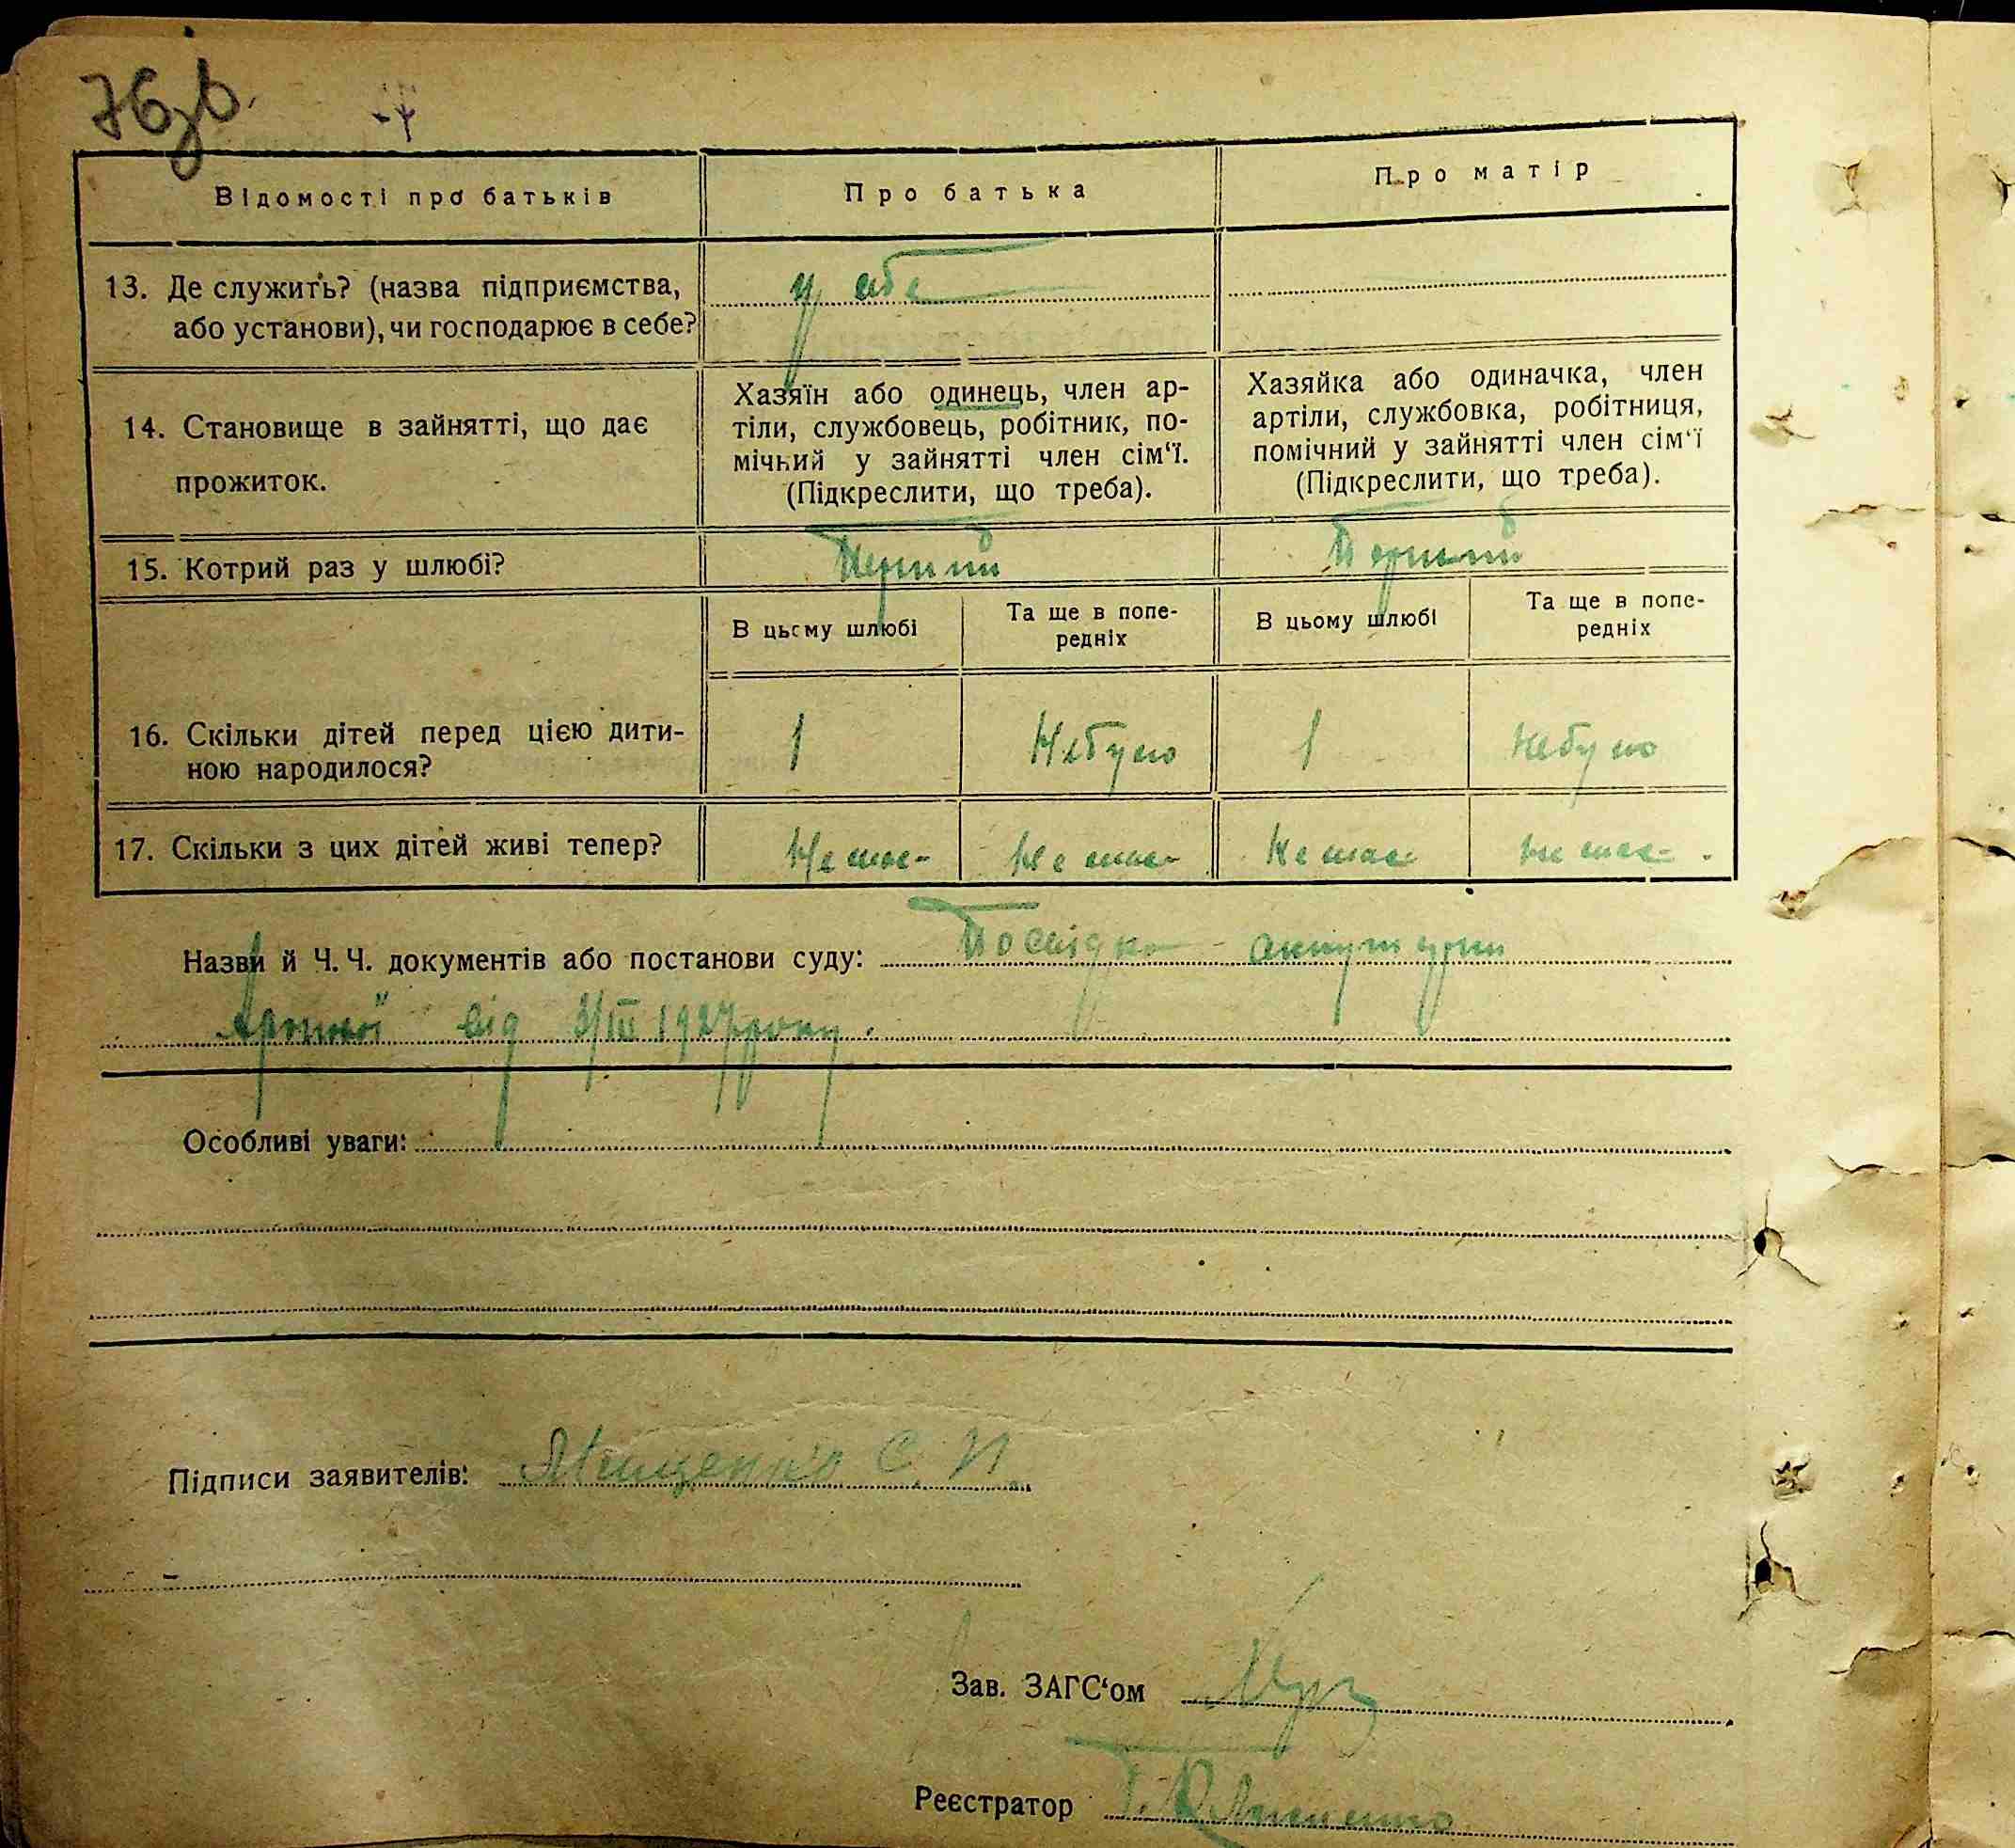 76зв.
Відомості про батьків
Про батька
Про матір
13. Де служить? (назва підприємства,
або установи), чи господарює в себе?
у себе
14. Становище в зайнятті, що дає
прожиток.
Хазяїн або одинець, член ар-
тіли, службовець, робітник, по-
мічний у зайнятті член сім‘ї.
(Підкреслити, що треба).
Хазяйка або одиначка, член
артіли, службовка, робітниця,
помічний у зайнятті член сім‘ї
(Підкреслити, що треба).
15. Котрий раз у шлюбі?
Перший
Перший
В цьому шлюбі
Та ще в попе-
редніх
В цьому шлюбі
Та ще в попе-
редніх
16. Скільки дітей перед цією дити-
ною народилося?
1
Небуло
1
Небуло
17. Скільки з цих дітей живі тепер?
Немає
Немає
Немає
Немає
Назви й Ч. Ч. документів або постанови суду: Посвідка
від 3/III 1927 року.
Особливі уваги:
Підписи заявителів: С. И.
Зав. ЗАГС‘ом
Реєстратор